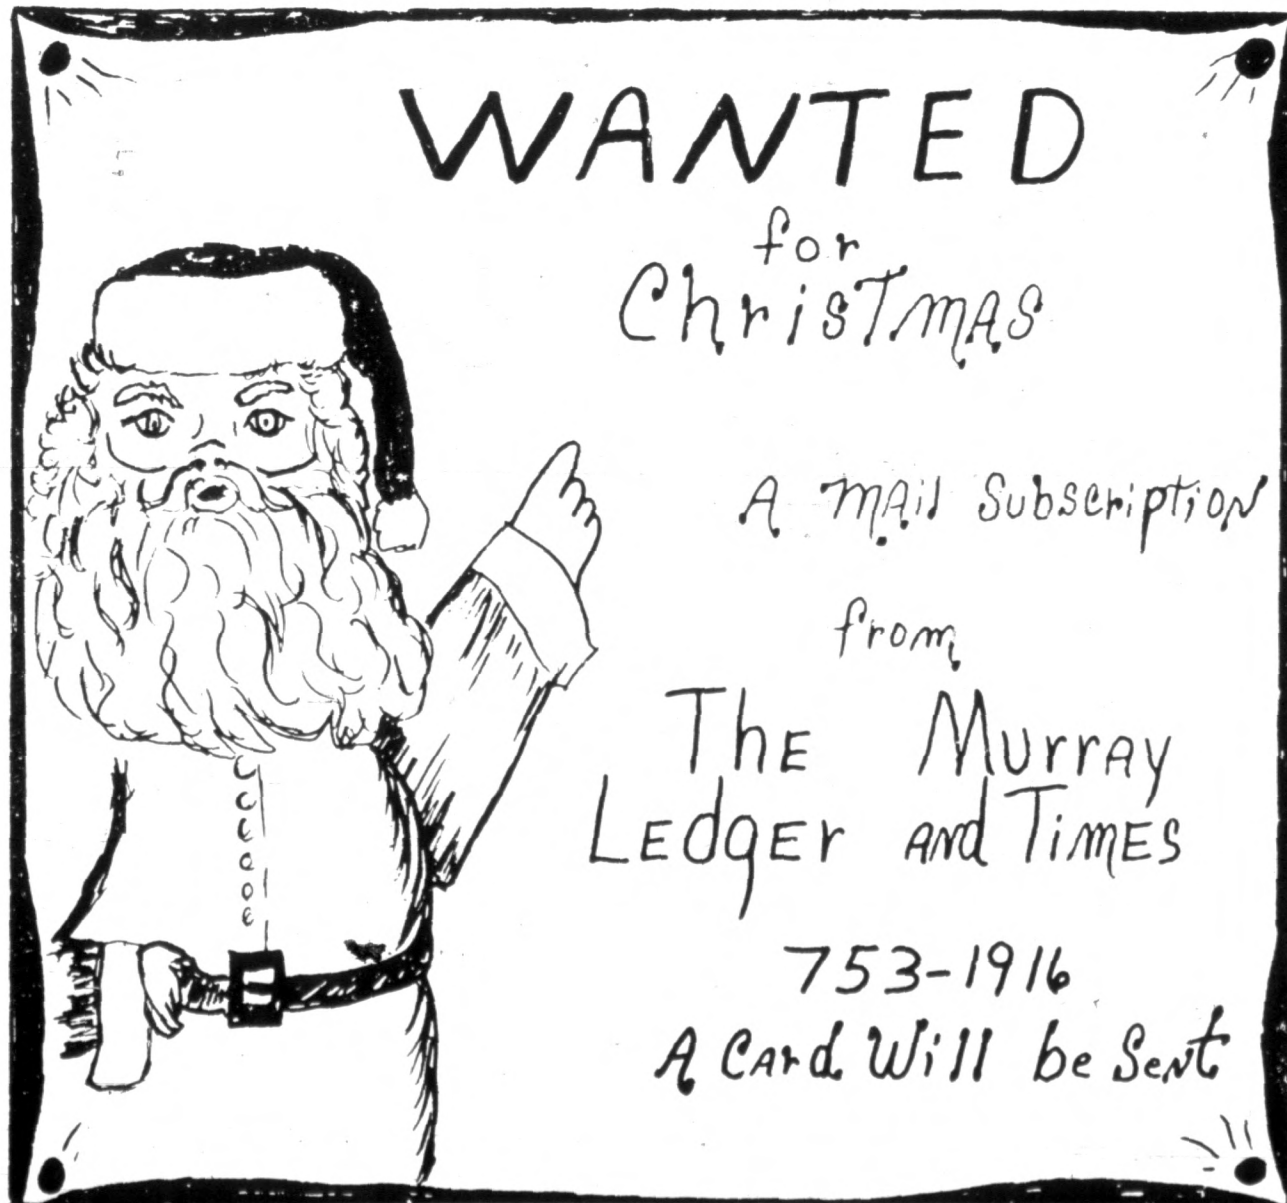 WANTED
for
Christmas
A mail Subscription
from
The Murray
Ledger and Times
753-1916
A Card Will be Sent